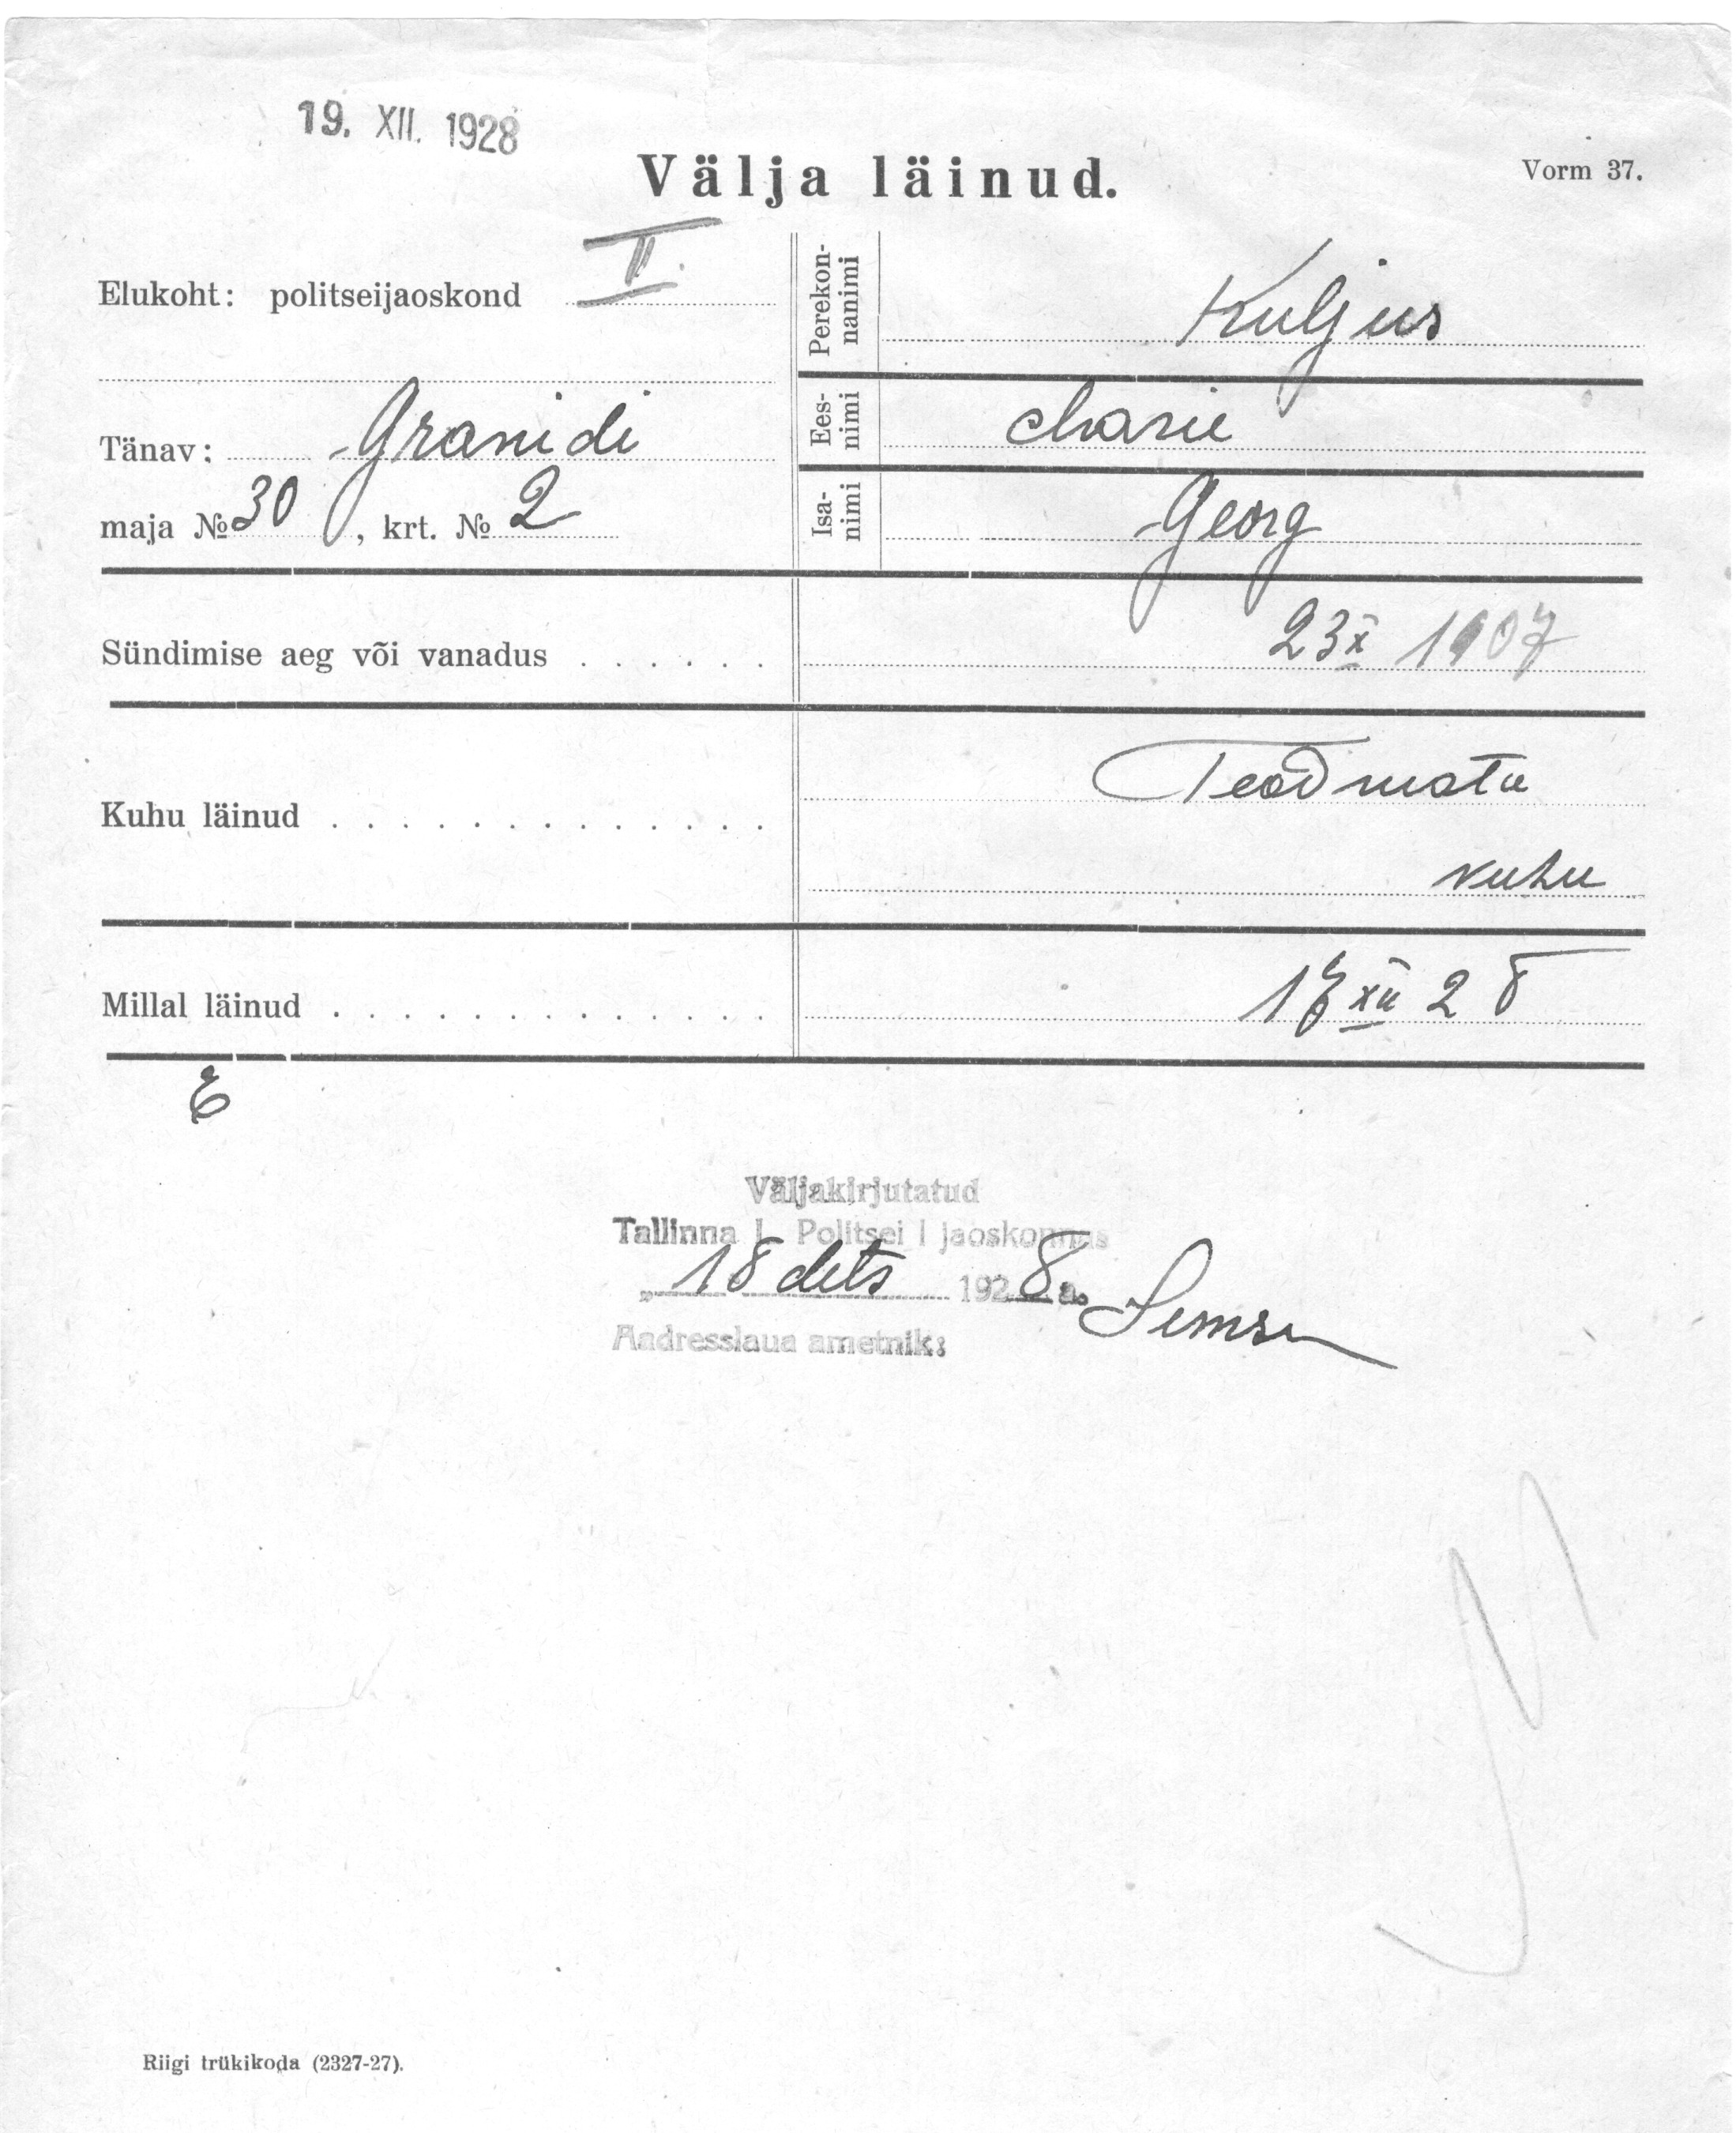 19. XII. 1928
Välja läinud.
Vorm 37.
Elukoht: politseijaoskond I
Tänav: Granidi
maja № 30, krt. № 2
Perekon-
nanimi
Kuljus
Ees-
nimi
Marie
Isa-
nimi
Georg
Sündimise aeg või vanadus . . . . . . 23 X 1907
Kuhu läinud . . . . . . . . . . . . . Teadmata
kuhu
Millal läinud . . . . . . . . . . . . . 17 XII 28
Väljakirjutatud
Tallinna L. Politsei I jaoskonnas
„ 18 dets 1928 a.
Aadresslaua ametnik:
Riigi trükikoda (2327-27).